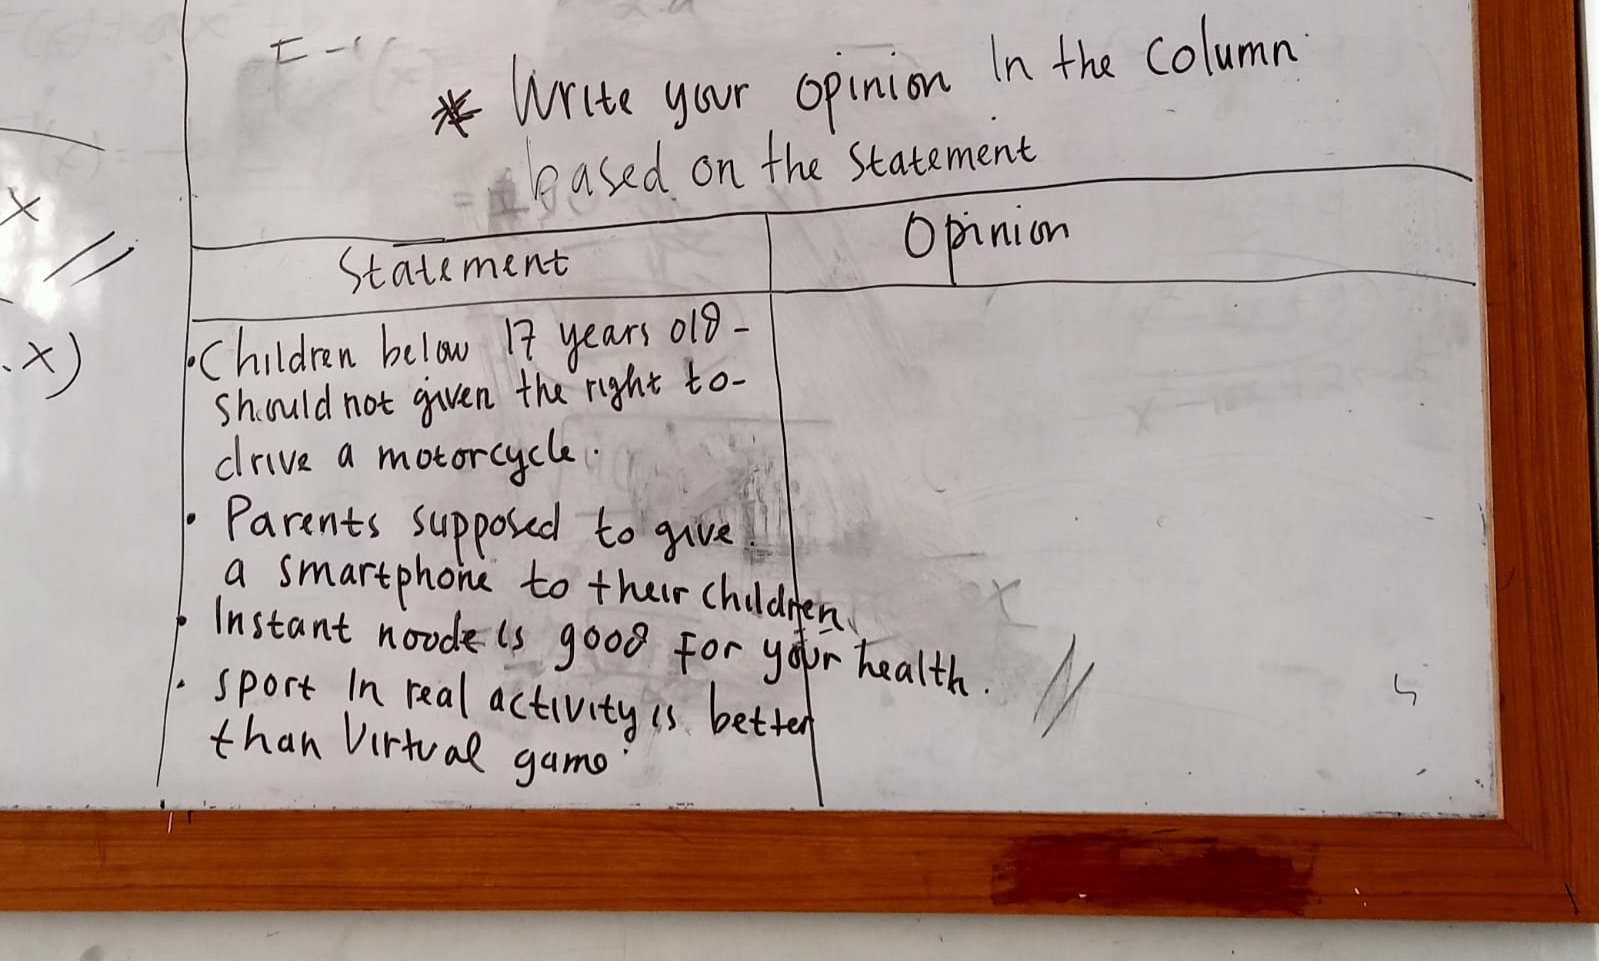 * Write your opinion in the column
based on the statement
Statement
Opinion
• Children below 17 years old -
should not given the right to -
drive a motorcycle.
• Parents supposed to give
a smartphone to their children
• Instant noode is good for your health.
• sport in real activity is better
than virtual game
x
.x)